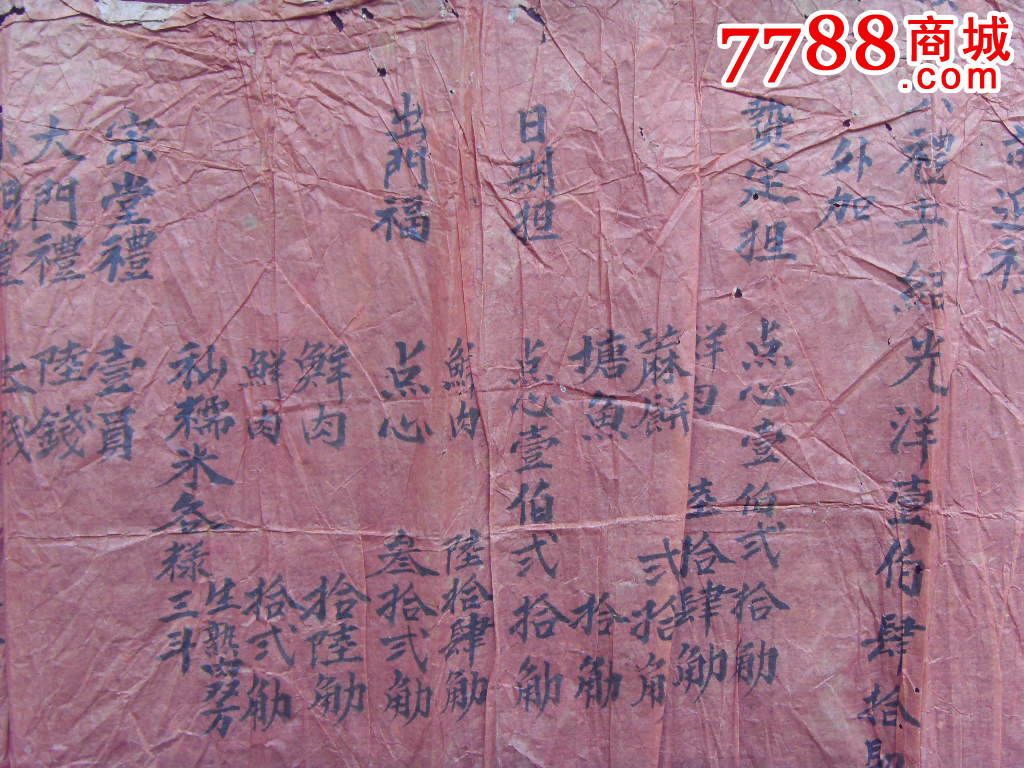 7788商城
.com
禮
光洋壹伯肆拾
外加
贄定担
点心壹伯弍拾觔
鮮肉
陸拾肆觔
蔴餅
弍拾觔
塘魚
拾觔
日期担
点心壹伯弍拾觔
鮮肉
陸拾肆觔
出門福
点心
叁拾弍觔
鮮肉
拾陸觔
鮮肉
拾弍觔
秈糯米各様三斗
生熟
宗堂禮
壹員
大門禮
陸錢